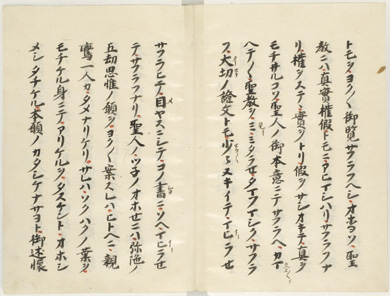 トモヲヨク〱御覧サフラフヘシオホヨソ聖
教ニハ真實權假トモニアヒマシハリサフラフナ
リ權ヲステヽ實ヲトリ假ヲサシオキテ真ヲ
モチヰルコソ聖人ノ御本意ニテサフラヘカマ
ヘテ〱聖教ヲミミタラセタマフマシクサフラ
フ大切ノ證文トモ少々ヌキイテマヒラセ
サフラヒテ目ヤスニシテコノ書ニソヘマヒラセ
テサフラフナリ聖人ノツネノオホセニハ弥陀ノ
五劫思惟ノ願ヲヨク〱案スレハヒトヘニ親
鸞一人カタメナリケリサレハソクハクノ業ヲ
モチケル身ニテアリケルヲタスケントオホシ
メシタチケル本願ノカタシケナサヨト御述懐